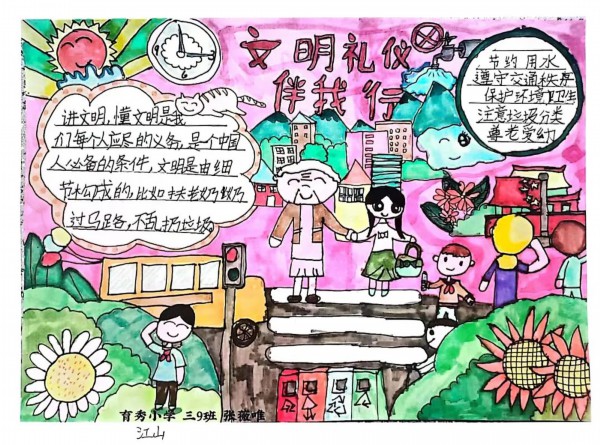 文明礼仪
伴我行
讲文明,懂文明是我
们每个人应尽的义务,是个中国
人必备的条件,文明是由细
节构成的,比如扶老奶奶
过马路,不乱扔垃圾
节约用水
遵守交通秩序
保护环境卫生
注意垃圾分类
尊老爱幼
育秀小学 三9班 张薇唯
江山